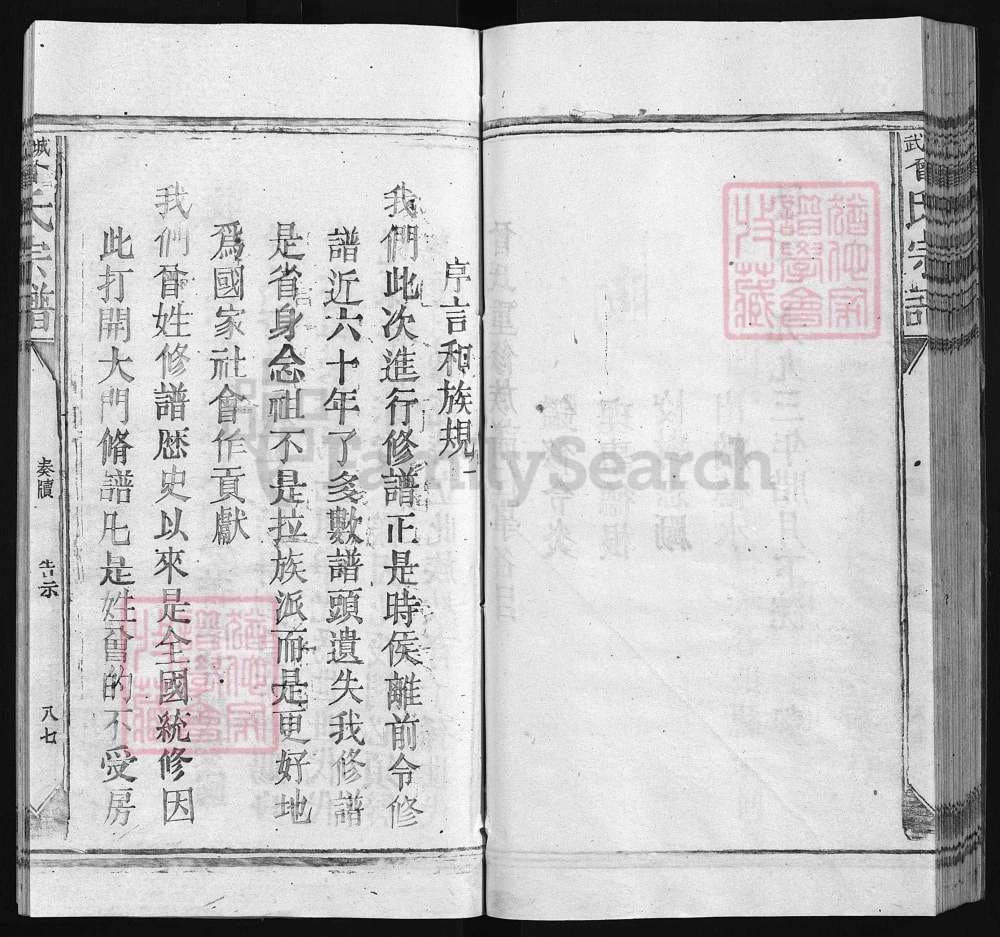 武
曾氏宗譜
猶他家
譜學會
收藏
序言和族規
我們此次進行修譜正是時侯離前令修
譜近六十年了多數譜頭遺失我修譜
是省身念祖不是拉族派而是更好地
爲國家社會作貢獻
我們曾姓修譜歷史以來是全國統修因
此打開大門脩譜凡是姓曾的不受房
猶他家
譜學會
收藏
城
氏宗譜
奏牘 告示
八七
FamilySearch